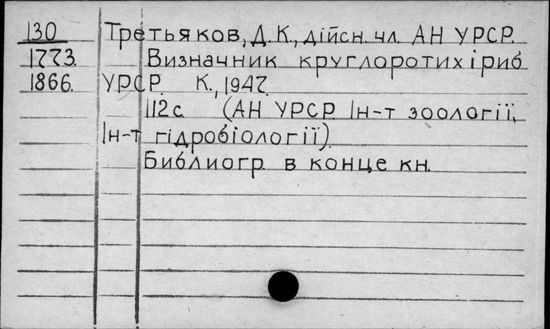 130 Третьяков, Д.К., дійсн. чл. АН УРСР.
1773. Визначник круглоротих і риб
1866. УРСР. К., 1947.
112с (АН УРСР Ін-т зоології,
Ін-т гідробіології).
Библиогр. в конце кн.